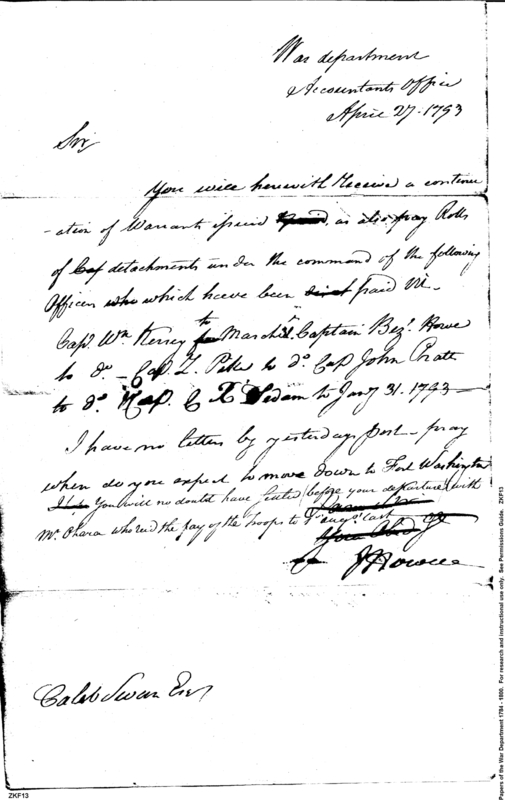 War department
Accountants Office
April 27. 1793
Sir
You will herewith Receive a continu
-ation of Warrants issued as also pay Rolls
of detachments under the command of the following
Officers which have been paid Viz.
Capt. Wm Kersey to March Captain Bezl. Howe
to do - Cap. Z. Pike to do Cap John Pratt
to do Cap. C R Sedam to Jany 31. 1793
I have no letters by yesterdays post - pray
when do you expect to move down to Fort Washington
You will no doubt have settled before your departure with
Mr. Ohara who red the pay of the troops to 1st augt. last
J Howell
Caleb Swan Esqr
ZKF13
Papers of the War Department 1784 - 1800. For research and instructional use only. See Permissions Guide. ZKF13